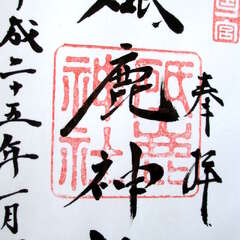 奉拝
砥鹿神
砥鹿
神社
成二十五年一月